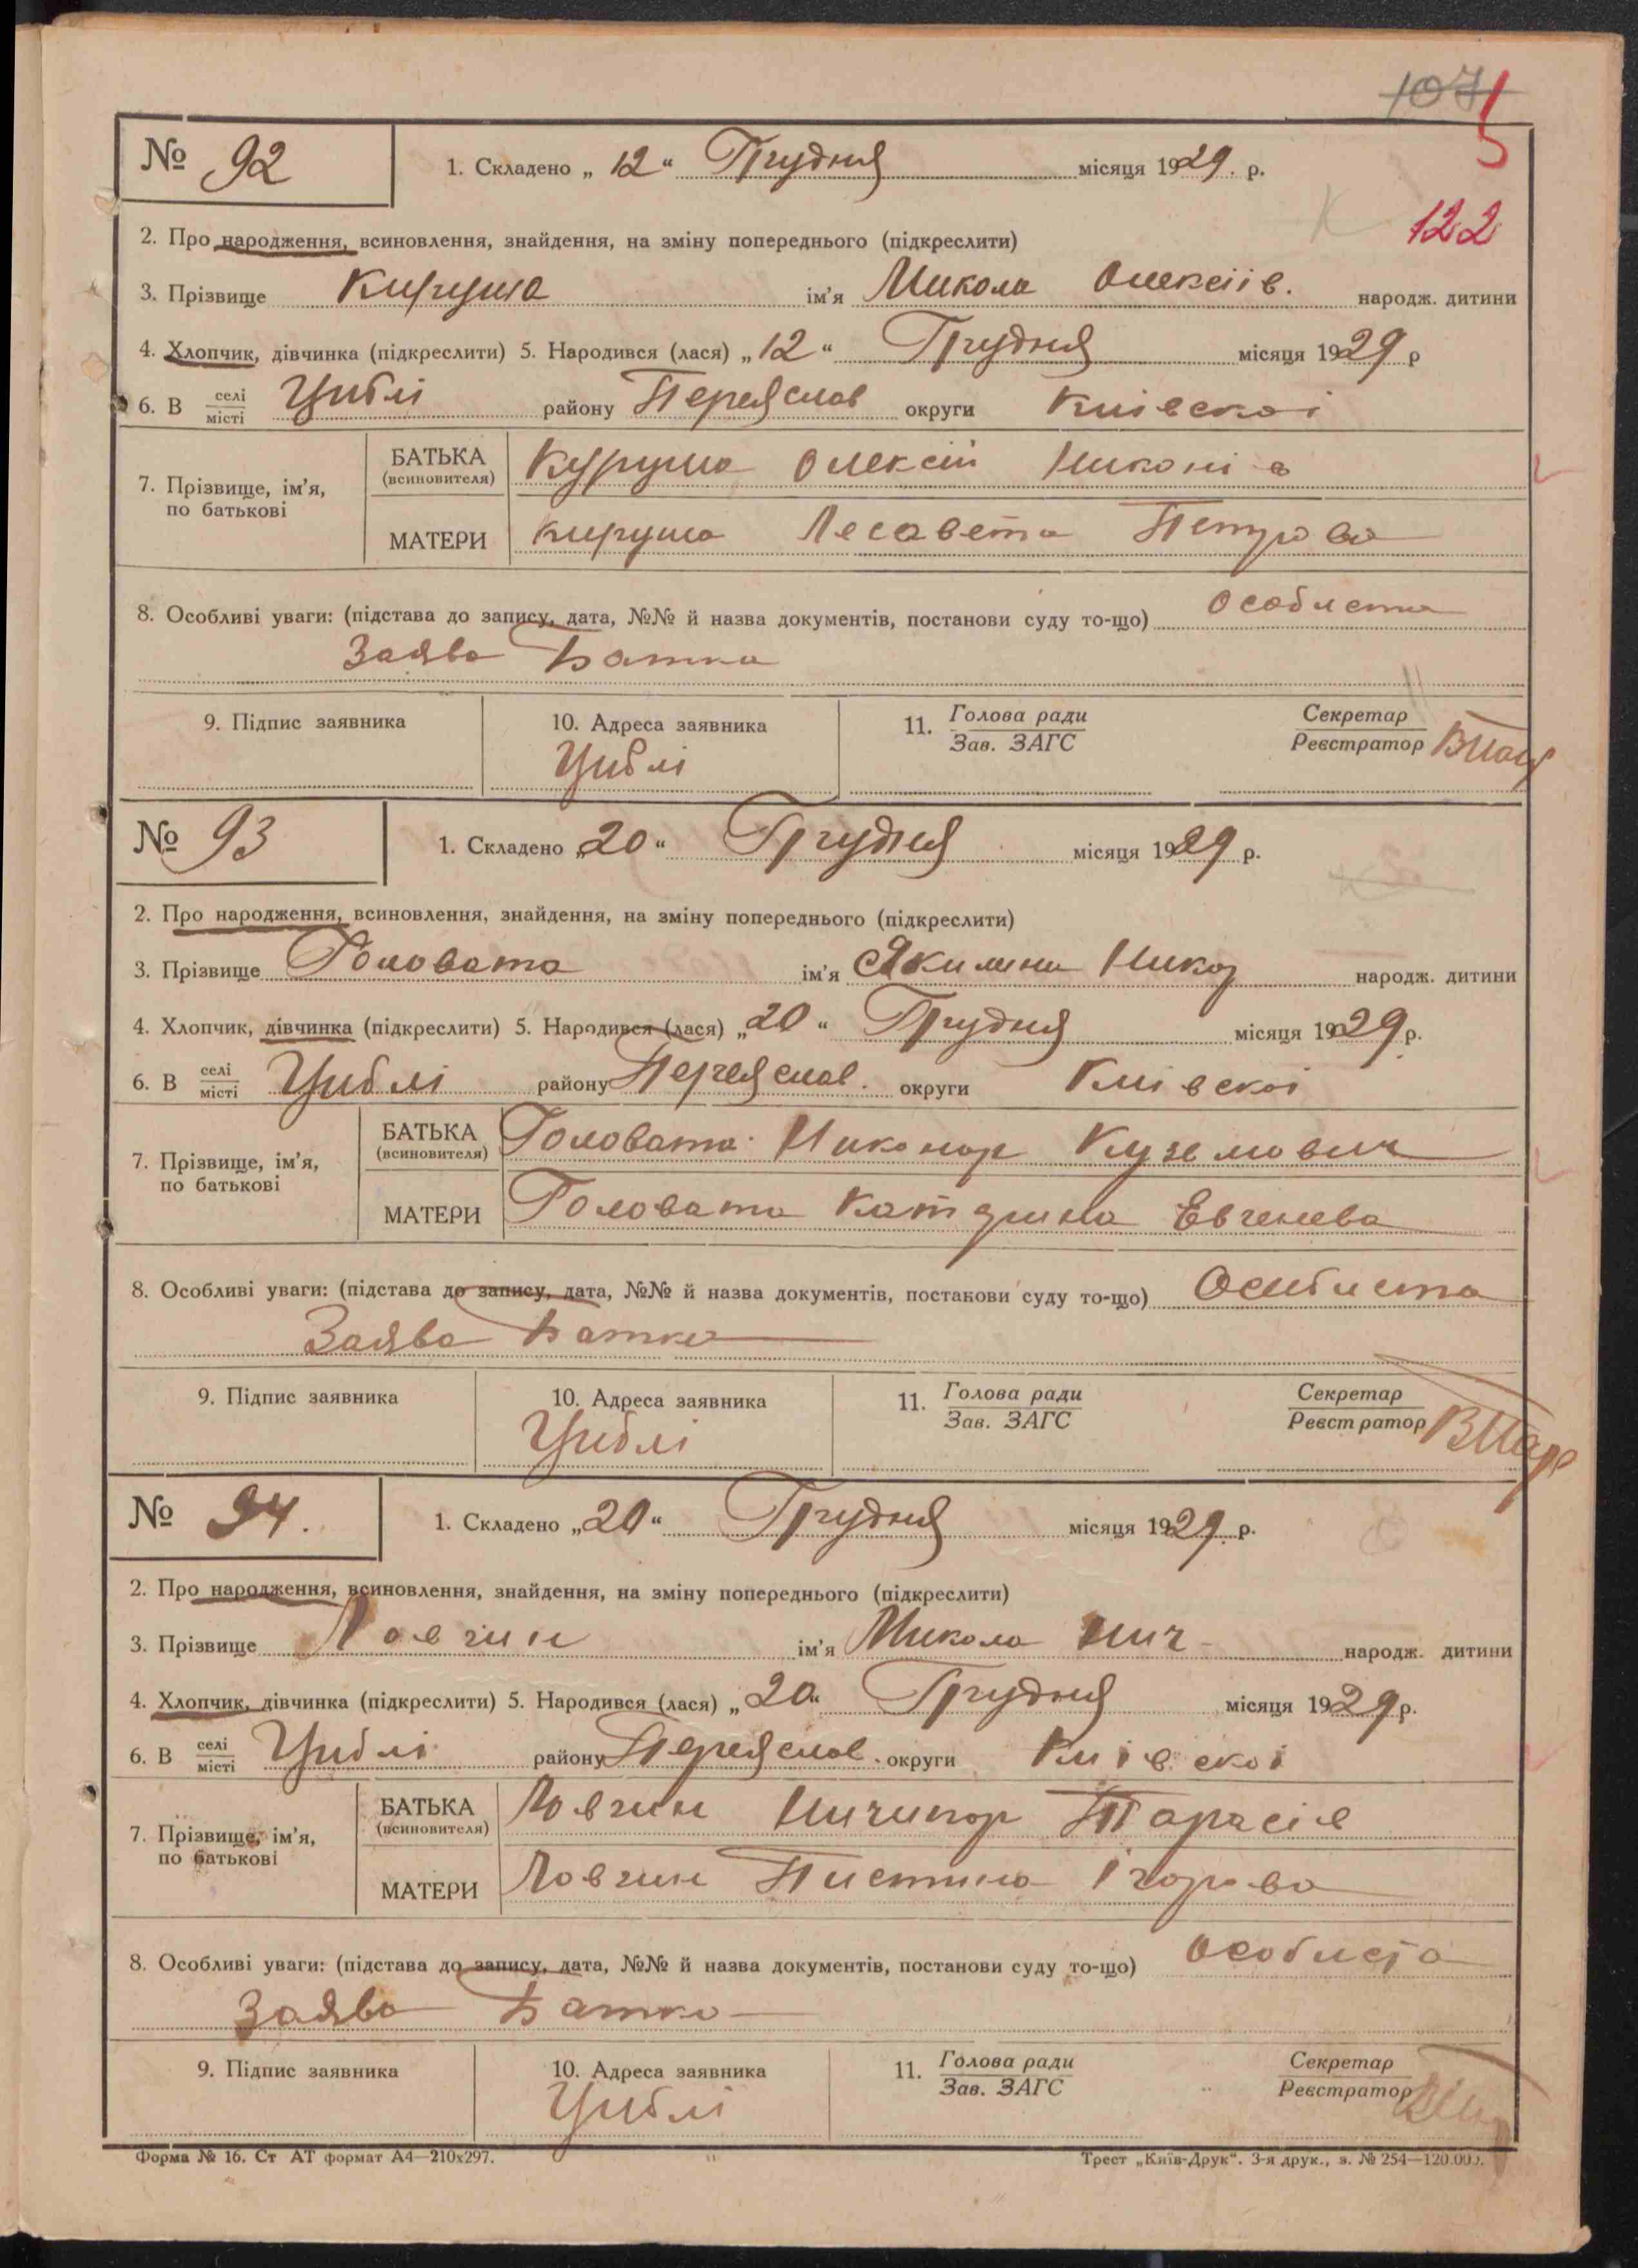 107
5
122
№ 92
1. Складено „ 12 “ Грудня місяця 1929. р.
2. Про народження, всиновлення, знайдення, на зміну попереднього (підкреслити)
3. Прізвище Кируша ім’я Микола Олексіїв. народж. дитини
4. Хлопчик, дівчинка (підкреслити) 5. Народився (лася) „ 12 “ Грудня місяця 1929 р
6. В селі/місті Циблі району Переяслав округи Київскої
7. Прізвище, ім’я, по батькові
БАТЬКА (всиновителя) Куруша Олексій Никонів
МАТЕРИ Кируша Лесавета Петрова
8. Особливі уваги: (підстава до запису, дата, №№ й назва документів, постанови суду то-що) Особиста
Заява Батка
9. Підпис заявника
10. Адреса заявника Циблі
11. Голова ради/Зав. ЗАГС
Секретар/Реєстратор
№ 93
1. Складено „ 20 “ Грудня місяця 1929 р.
2. Про народження, всиновлення, знайдення, на зміну попереднього (підкреслити)
3. Прізвище Головата ім’я Якилина Никон народж. дитини
4. Хлопчик, дівчинка (підкреслити) 5. Народився (лася) „ 20 “ Грудня місяця 1929 р.
6. В селі/місті Циблі району Переяслав. округи Київскої
7. Прізвище, ім’я, по батькові
БАТЬКА (всиновителя) Головата Никонор Куземович
МАТЕРИ Головата Катерина Евгенева
8. Особливі уваги: (підстава до запису, дата, №№ й назва документів, постанови суду то-що) Особиста
Заява Батка
9. Підпис заявника
10. Адреса заявника Циблі
11. Голова ради/Зав. ЗАГС
Секретар/Реєстратор
№ 94.
1. Складено „ 20 “ Грудня місяця 1929. р.
2. Про народження, всиновлення, знайдення, на зміну попереднього (підкреслити)
3. Прізвище Ловгин ім’я Микола Нич народж. дитини
4. Хлопчик, дівчинка (підкреслити) 5. Народився (лася) „ 20 “ Грудня місяця 1929 р.
6. В селі/місті Циблі району Переяслав. округи Київскої
7. Прізвище, ім’я, по батькові
БАТЬКА (всиновителя) Ловгин Ничипор Тарасів
МАТЕРИ Ловгин Пистина Ігорова
8. Особливі уваги: (підстава до запису, дата, №№ й назва документів, постанови суду то-що) Особиста
Заява Батка
9. Підпис заявника
10. Адреса заявника Циблі
11. Голова ради/Зав. ЗАГС
Секретар/Реєстратор
Форма № 16. Ст АТ формат А4—210х297.
Трест „Київ-Друк“. 3-я друк., з. № 254—120.000.